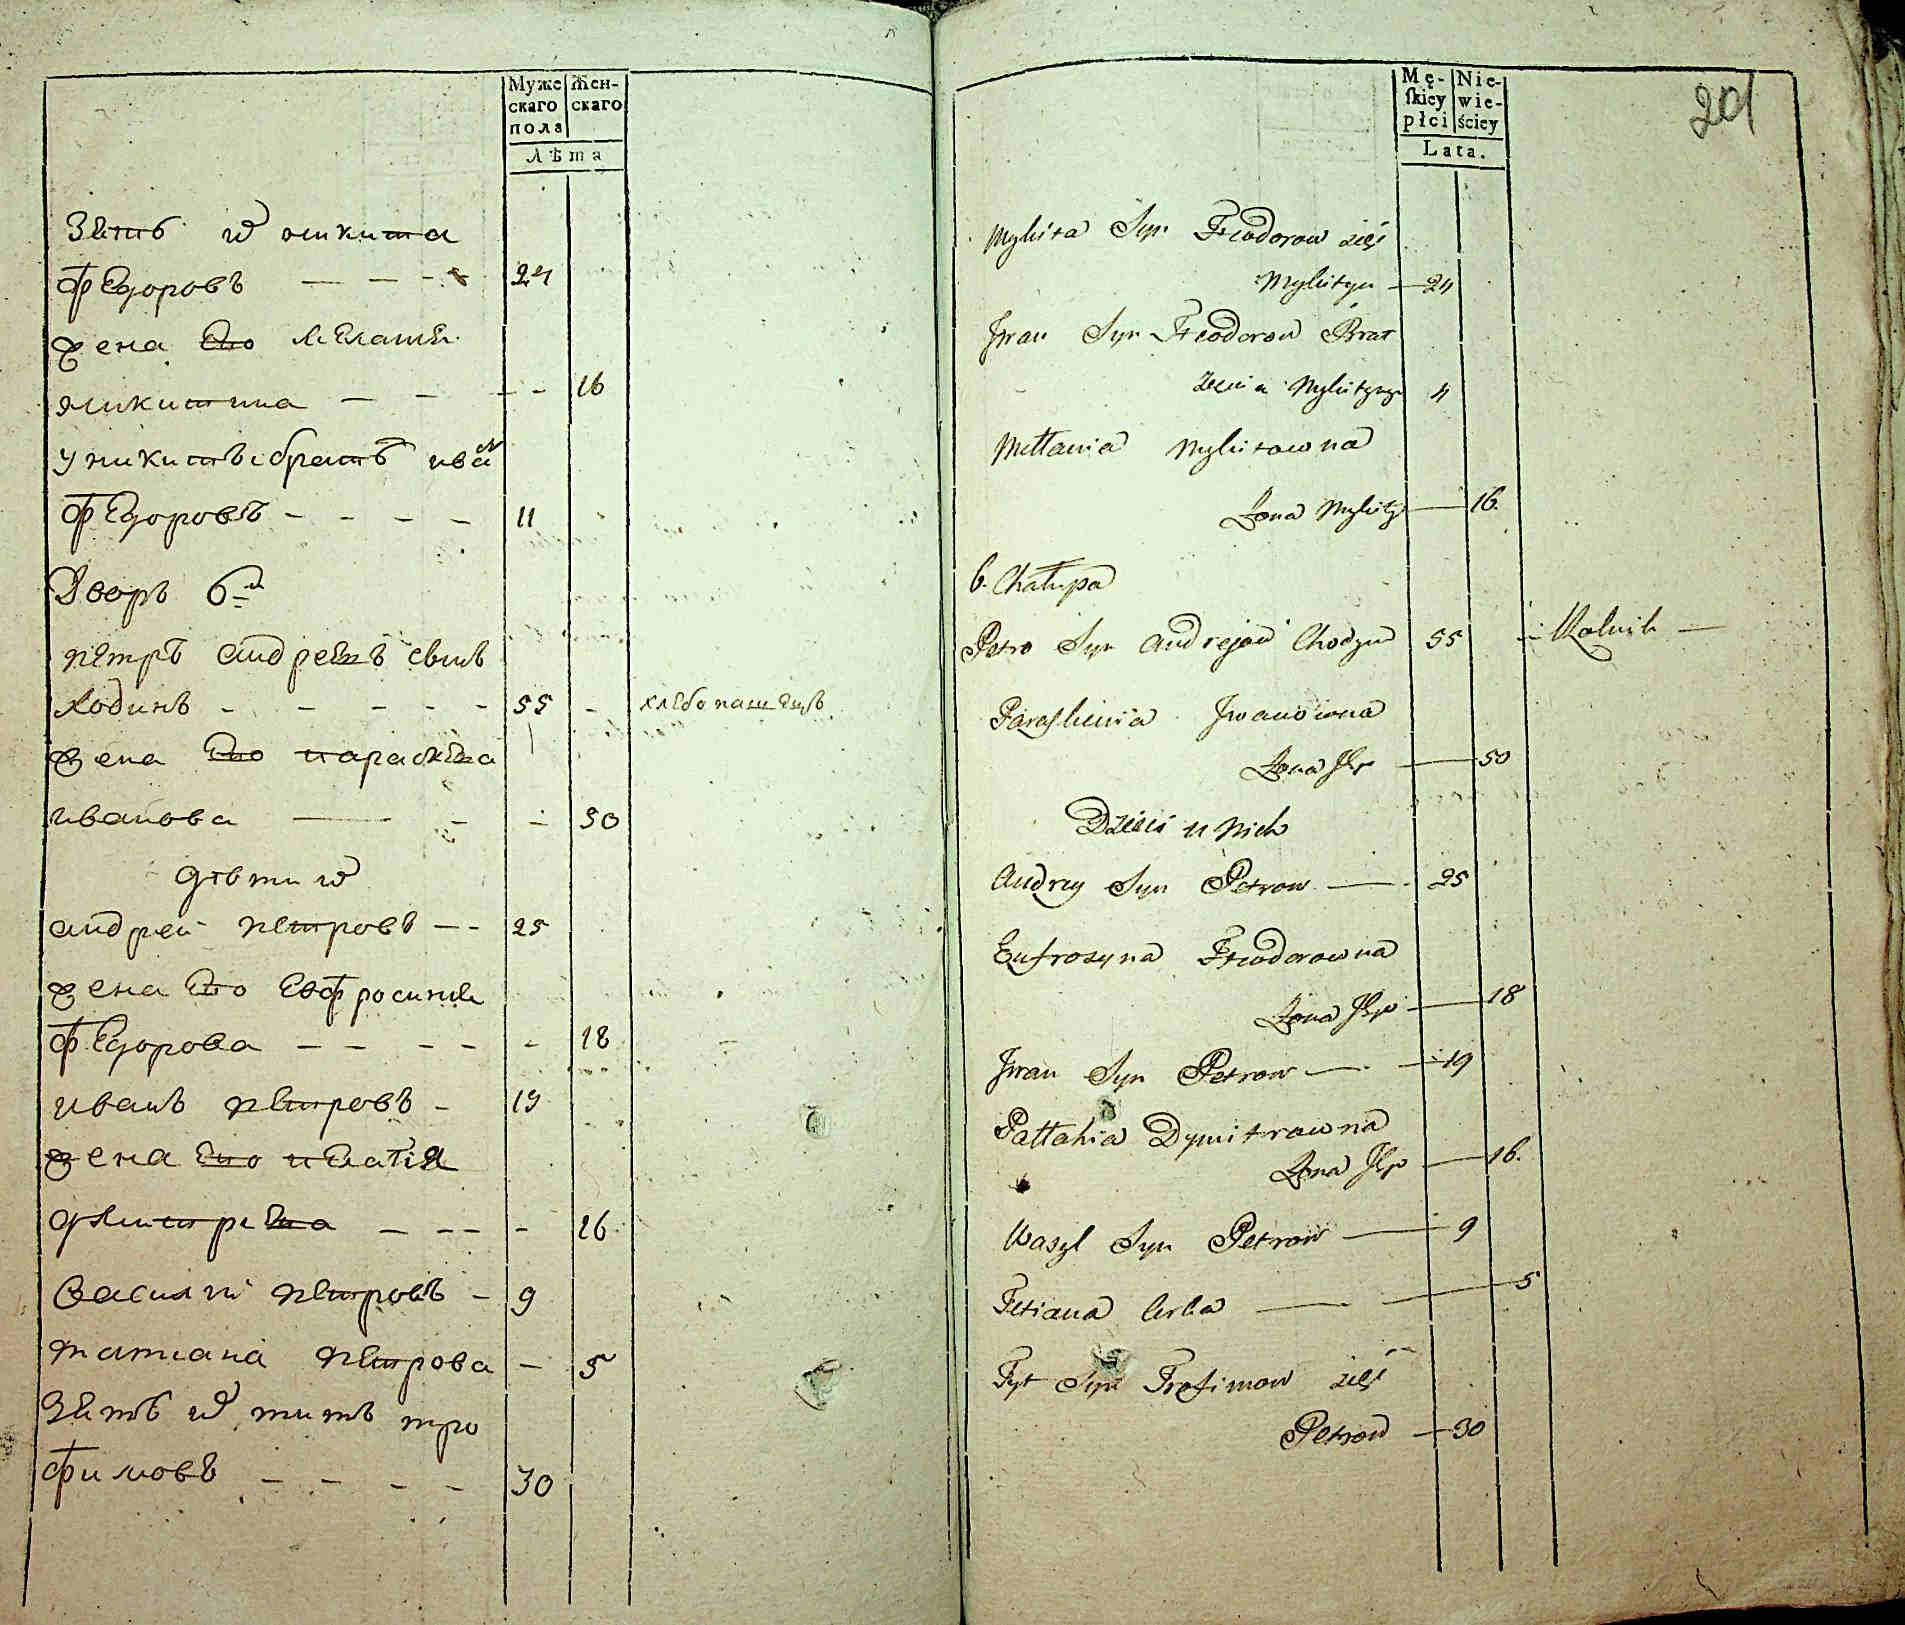 Муже Жен-
скаго скаго
пола
Лѣта
Зять ихъ никита
Федоровъ — — - - 24
жена Его Мелания
никитина — - - - 16
У никиты братъ иванъ
Федоровъ - - - - 11
Дворъ 6й
петръ андреевъ сынъ
ходинъ - - - - - 55 - хлебопашецъ
жена Его параскева
иванова — - - 50
дѣти ихъ
андрей петровъ -- 25
жена Его Евфросиния
Федорова - - - - - 18
иванъ петровъ - 19
жена Его пелагия
дмитрева - -- - 16
Василий петровъ - 9
татиана петрова - 5
Зять ихъ титъ тро
фимовъ - - - - 30
201
Mę- Nie-
skiey wie-
płci ściey
Lata.
Mykita Syn Fieodorow zięć
Mykityn — 24
Jwan Syn Fieodorow Brat
Mykityn 11
Mełania Mykitowna
Żona — 16.
6. Chałupa
Petro Syn Andrejow Chodyn 55 - Rolnik —
Paraskiewia Jwanowna
Żona Jego — 50
Dzieci u Nich
Andrey Syn Petrow — 25
Eufrosyna Fieodorowna
Żona Jego — 18
Jwan Syn Petrow — 19
Pałłahia Dymitrowna
Żona Jego — 16.
Wasyl Syn Petrow — 9
Tetiana Corka — 5
Tyt Syn Trofimow zięć
Petrow — 30